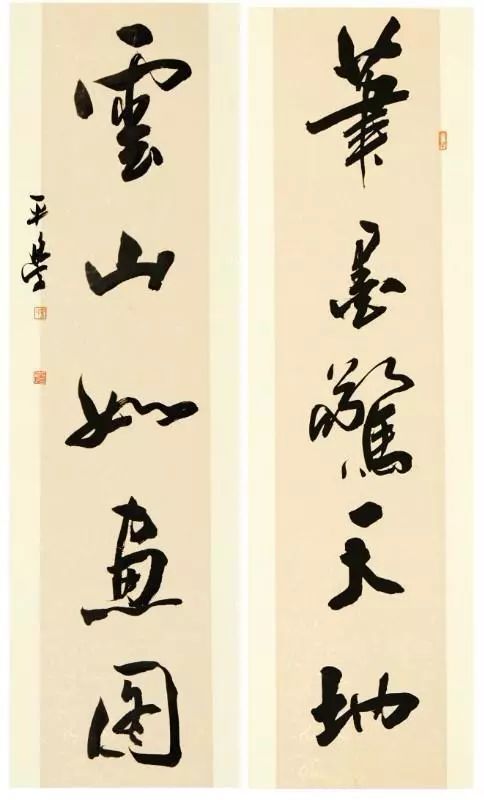 筆墨驚天地
雲山如畫圖
平學